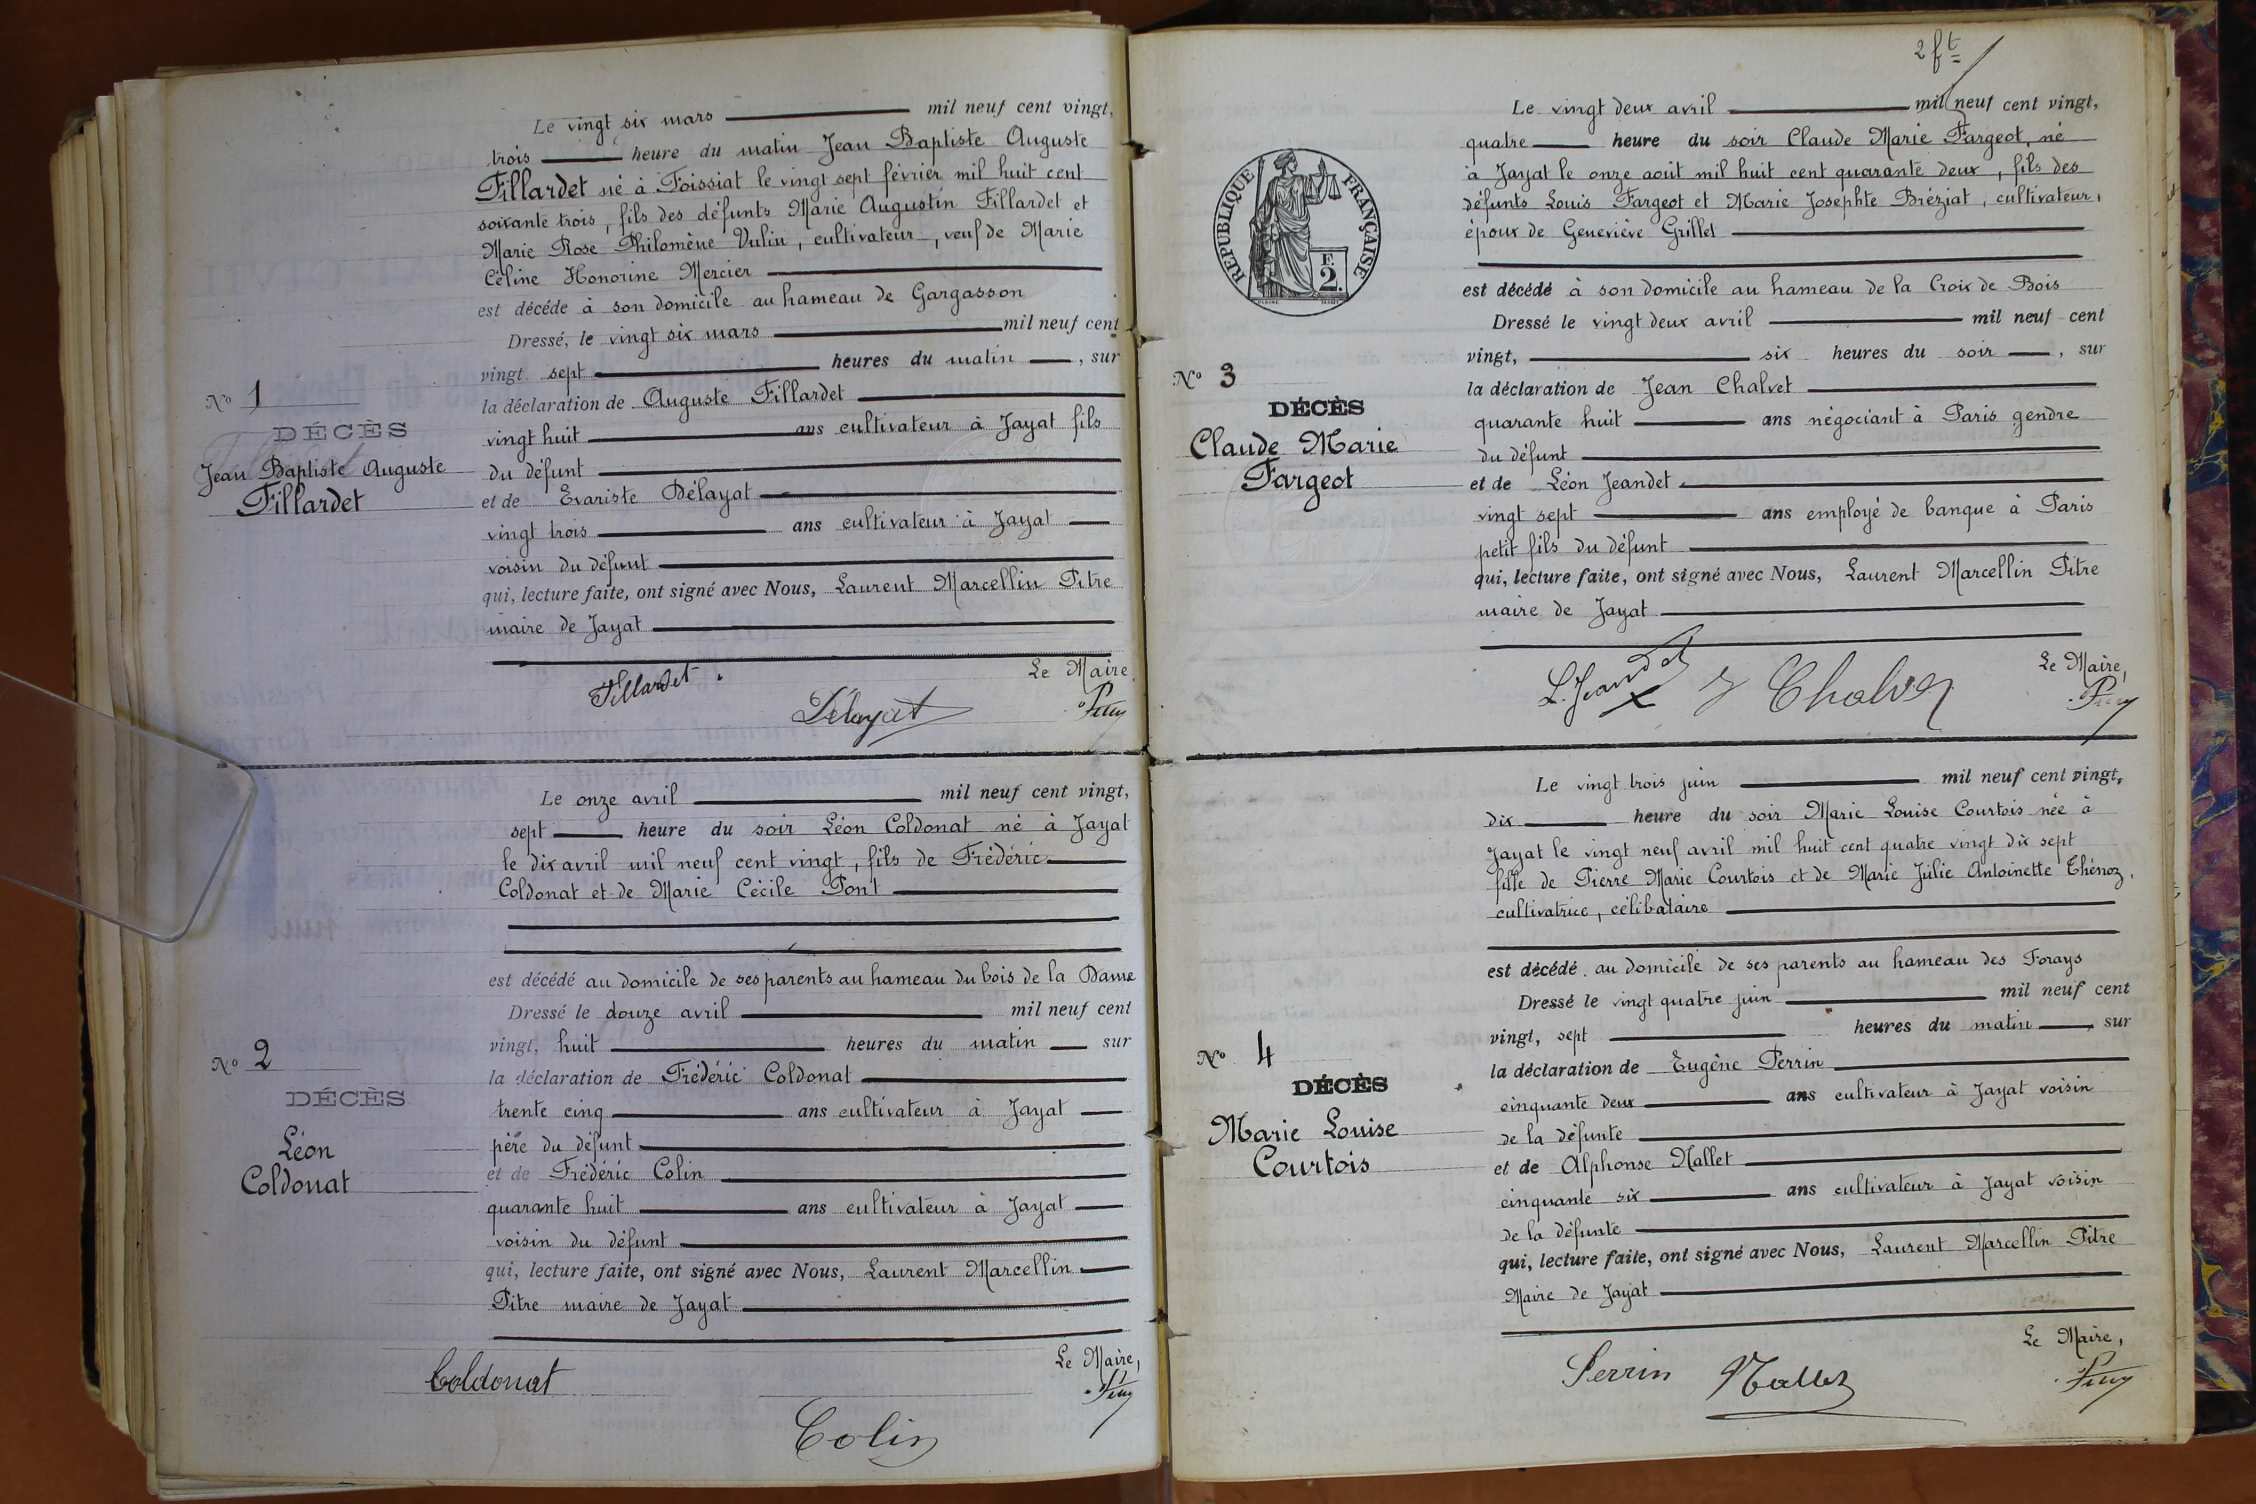 Le vingt six mars mil neuf cent vingt,
trois heure du matin Jean Baptiste Auguste
Fillardet né à Foissiat le vingt sept février mil huit cent
soixante trois, fils des défunts Marie Augustin Fillardet et
Marie Rose Philomène Vulin, cultivateur, veuf de Marie
Céline Honorine Mercier
est décédé à son domicile au hameau de Gargasson
Dressé, le vingt six mars mil neuf cent
vingt sept heures du matin, sur
la déclaration de Auguste Fillardet
vingt huit ans cultivateur à Jayat fils
du défunt
et de Evariste Délayat
vingt trois ans cultivateur à Jayat
voisin du défunt
qui, lecture faite, ont signé avec Nous, Laurent Marcellin Pitre
maire de Jayat
Le Maire,
Fillardet
Délayat
Pitre
No 1
DÉCÈS
Jean Baptiste Auguste
Fillardet
Le onze avril mil neuf cent vingt,
sept heure du soir Léon Coldonat né à Jayat
le dix avril mil neuf cent vingt, fils de Frédéric
Coldonat et de Marie Cécile Pont
est décédé au domicile de ses parents au hameau du bois de la Dame
Dressé le douze avril mil neuf cent
vingt, huit heures du matin sur
la déclaration de Frédéric Coldonat
trente cinq ans cultivateur à Jayat
père du défunt
et de Frédéric Colin
quarante huit ans cultivateur à Jayat
voisin du défunt
qui, lecture faite, ont signé avec Nous, Laurent Marcellin
Pitre maire de Jayat
Le Maire,
Coldonat
Pitre
Colin
No 2
DÉCÈS
Léon
Coldonat
2 ft
RÉPUBLIQUE FRANÇAISE
F.
2.
Le vingt deux avril mil neuf cent vingt,
quatre heure du soir Claude Marie Fargeot, né
à Jayat le onze août mil huit cent quarante deux, fils des
défunts Louis Fargeot et Marie Josephte Bréziat, cultivateur,
époux de Geneviève Grillet
est décédé à son domicile au hameau de la Croix de Bois
Dressé le vingt deux avril mil neuf cent
vingt, six heures du soir, sur
la déclaration de Jean Chalvet
quarante huit ans négociant à Paris gendre
du défunt
et de Léon Jeandet
vingt sept ans employé de banque à Paris
petit fils du défunt
qui, lecture faite, ont signé avec Nous, Laurent Marcellin Pitre
maire de Jayat
Le Maire,
L. Jeandet
J Chalvet
Pitre
No 3
DÉCÈS
Claude Marie
Fargeot
Le vingt trois juin mil neuf cent vingt,
dix heure du soir Marie Louise Courtois née à
Jayat le vingt neuf avril mil huit cent quatre vingt dix sept
fille de Pierre Marie Courtois et de Marie Julie Antoinette Thénoz,
cultivatrice, célibataire
est décédé au domicile de ses parents au hameau des Forays
Dressé le vingt quatre juin mil neuf cent
vingt, sept heures du matin, sur
la déclaration de Eugène Perrin
cinquante deux ans cultivateur à Jayat voisin
de la défunte
et de Alphonse Mallet
cinquante six ans cultivateur à Jayat voisin
de la défunte
qui, lecture faite, ont signé avec Nous, Laurent Marcellin Pitre
Maire de Jayat
Le Maire,
Perrin Mallet
Pitre
No 4
DÉCÈS
Marie Louise
Courtois